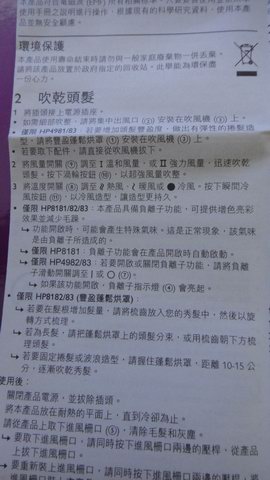 本產品符合電磁波 (EMF) 所有相關標準。只要
使用手冊之說明進行操作，根據現有的科學研究資料，使用本產
品並無安全顧慮。
環境保護
本產品使用壽命結束時請勿與一般家庭廢棄物一併丟棄。
請將該產品放置於政府指定的回收站，此舉能為環保盡
一份心力。
2 吹乾頭髮
1 將插頭接上電源插座。
• 如需細部整燙，請將集中出風口 ① 安裝在吹風機 ③ 上。
• 僅限 HP4981/83：若要增加頭髮豐盈度，做出有彈性的捲髮造
型，請將豐盈蓬鬆烘罩 安裝在吹風機 ③ 上。
• 若要取下配件，請直接從吹風機拔下。
2 將風量開關 調至 I 溫和風量，或 II 強力風量，迅速吹乾
頭髮。按下渦輪按鈕，以超強風量吹整。
3 將溫度開關 調至 熱風、暖風或 冷風。按下瞬間冷
風按鈕，以冷風造型，讓造型更持久。
• 僅限 HP8181/82/83：本產品具備負離子功能，可提供增色亮彩
效果並減少毛躁。
↳ 功能開啟時，可能會產生特殊氣味。這是正常現象，該氣味
是由負離子所造成的。
↳ 僅限 HP8181：負離子功能會在產品開啟時自動啟動。
↳ 僅限 HP4982/83：若要開啟或關閉負離子功能，請將負離
子滑動開關調至 I 或 O ⑦。
↳ 如果該功能開啟，負離子指示燈 ④ 會亮起。
• 僅限 HP8182/83 (豐盈蓬鬆烘罩)：
↳ 若要在髮根增加髮量，請將梳齒放入您的秀髮中，然後以旋
轉方式梳理。
↳ 若為長髮，請把蓬鬆烘罩上的頭髮分束，或用梳齒朝下方梳
理頭髮。
↳ 若要固定捲髮或波浪造型，請握住蓬鬆烘罩，距離 10-15 公
分，逐漸吹乾秀髮。
使用後：
關閉產品電源，並拔除插頭。
將本產品放在耐熱的平面上，直到冷卻為止。
請從產品上取下進風柵口 ⑤，清除毛髮和灰塵。
↳ 要取下進風柵口，請同時按下進風柵口兩邊的壓桿，從產品
上拔下進風柵口。
↳ 要重新裝上進風柵口，請同時按下進風柵口兩邊的壓桿，將